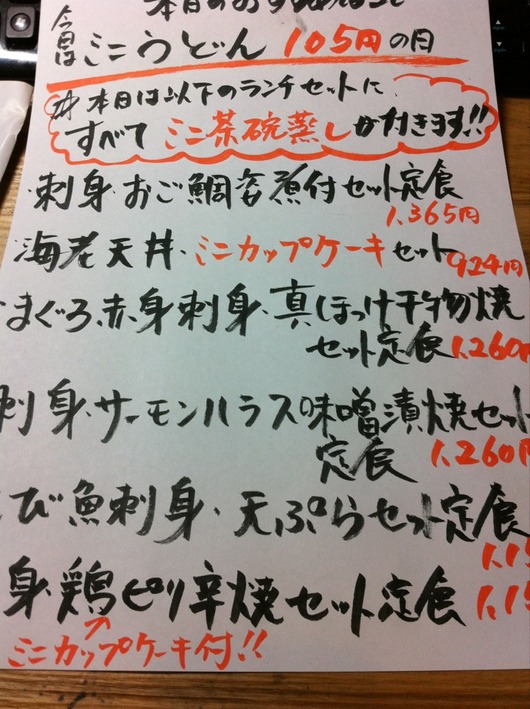 本日のおすすめ
今日は ミニうどん 105円の日
本日は以下のランチセットに
すべて ミニ茶碗蒸しが付きます!!
刺身・おご鯛煮付セット定食
1,365円
海老天丼・ミニカップケーキセット
924円
まぐろ赤身刺身・真ほっけ干物焼
セット定食 1,260円
刺身・サーモンハラスの味噌漬焼セット
定食 1,260円
とび魚刺身・天ぷらセット定食
1,1
身・鶏ピリ辛焼セット定食 1,1
ミニカップケーキ付!!